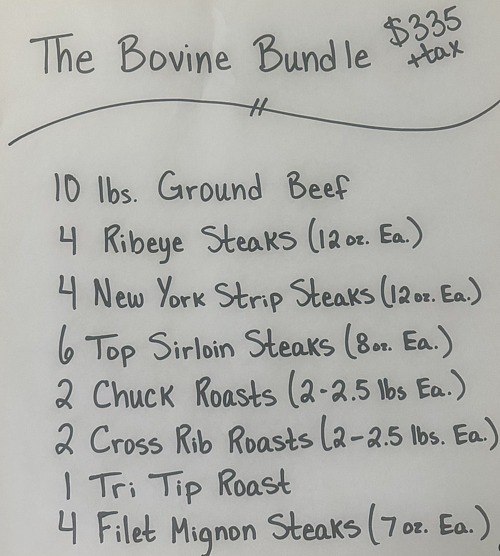 The Bovine Bundle $335
+tax
10 lbs. Ground Beef
4 Ribeye Steaks (12 oz. Ea.)
4 New York Strip Steaks (12 oz. Ea.)
6 Top Sirloin Steaks (8 oz. Ea.)
2 Chuck Roasts (2-2.5 lbs Ea.)
2 Cross Rib Roasts (2-2.5 lbs. Ea.)
1 Tri Tip Roast
4 Filet Mignon Steaks (7 oz. Ea.)